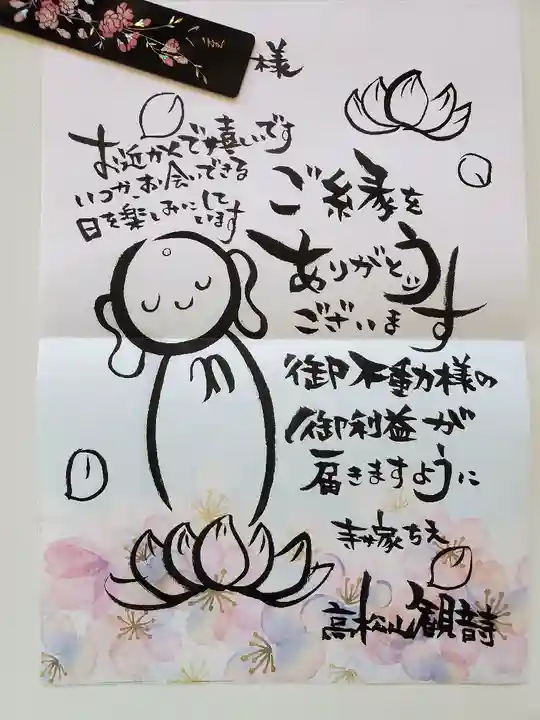 様
ご縁を
ありがとう
ございます
御不動様の
御利益が
届きますように
寺嫁ちえ
高松山観音寺
お近かくで嬉しいです
いつかお会いできる
日を楽しみにして
います